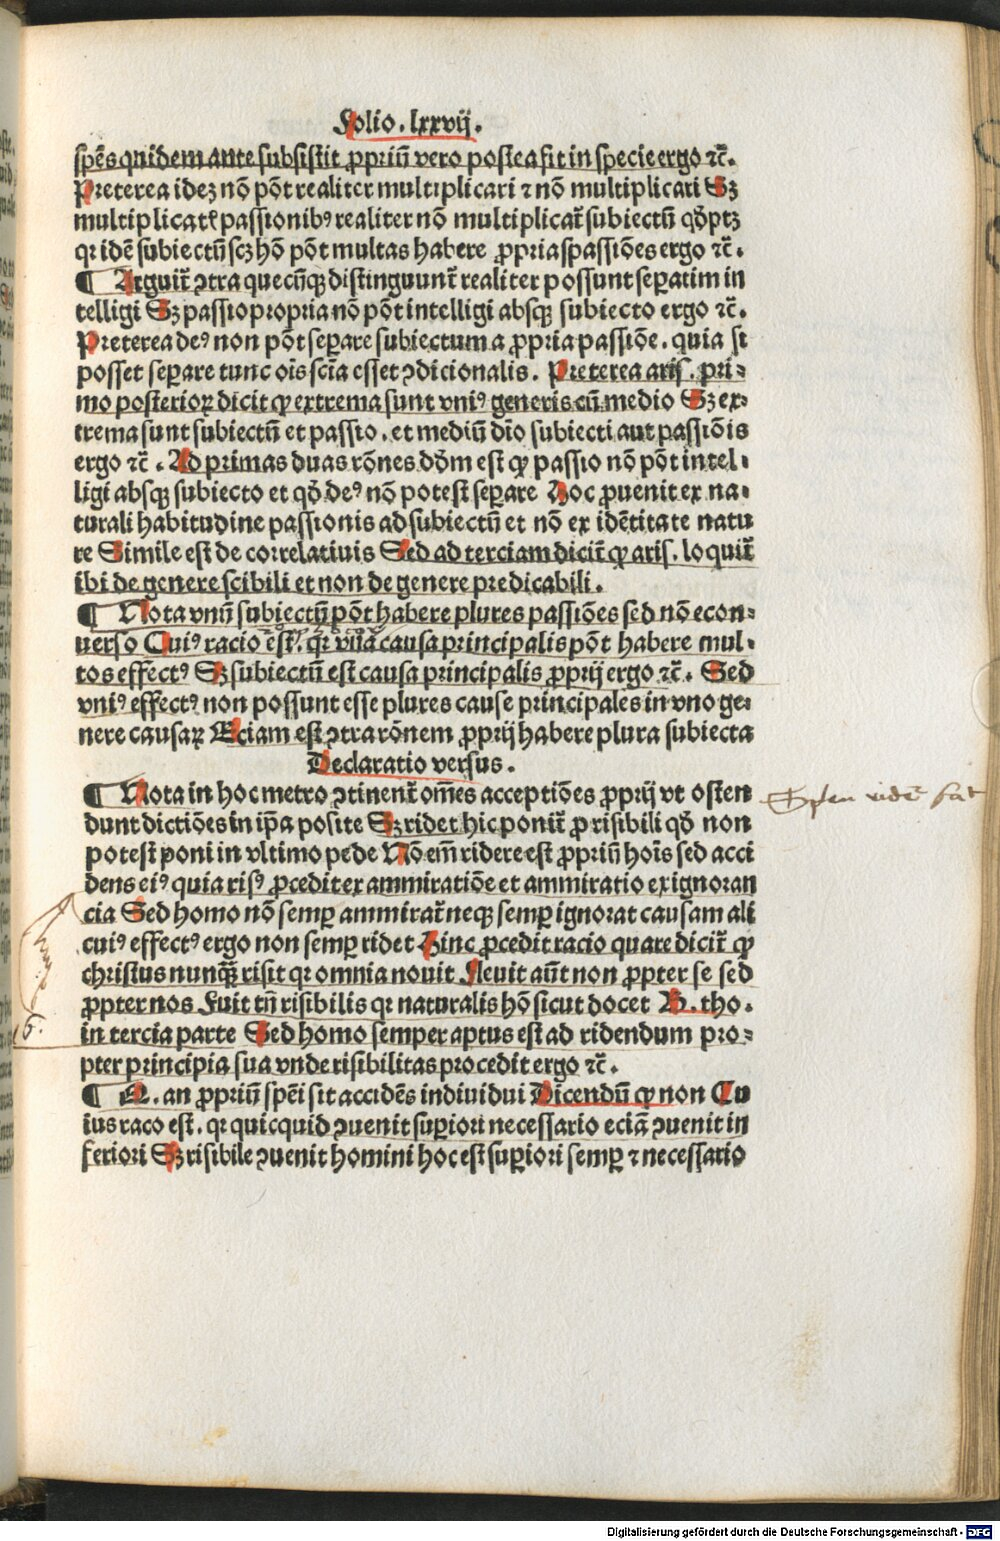 Folio. lxxvij.
spēs quidem ante subsistit ꝓpriū vero postea fit in specie ergo ⁊c̄.
Preterea idez nō pōt realiter multiplicari ⁊ nō multiplicari Sꝫ
multiplicatꝭ passionibꝰ realiter nō multiplicat᷑ subiectū qđ ptꝫ
qꝛ idē subiectū scꝫ hō pōt multas habere ꝓprias passiōes ergo ⁊c̄.
¶ Arguit᷑ ↄtra quecūqꝫ distinguunt᷑ realiter possunt seꝑatim in
telligi Sꝫ passio propria nō pōt intelligi absqꝫ subiecto ergo ⁊c̄.
Preterea deꝰ non pōt seꝑare subiectum a ꝓpria passiōe. quia si
posset seꝑare tunc oīs scīa esset ↄdicionalis. Preterea aris. pri⸗
mo posterioꝝ dicit ꝙ extrema sunt vniꝰ generis cū medio Sꝫ ex⸗
trema sunt subiectū et passio. et mediū dīo subiecti aut passiōis
ergo ⁊c̄. Ad primas duas rōnes dđm est ꝙ passio nō pōt intel⸗
ligi absqꝫ subiecto et qđ deꝰ nō potest seꝑare Hoc ꝓuenit ex na⸗
turali habitudine passionis ad subiectū et nō ex idētitate natu
re Simile est de correlatiuis Sed ad terciam dicit᷑ ꝙ aris. loquit᷑
ibi de genere scibili et non de genere predicabili.
¶ Nota vnū subiectū pōt habere plures passiōes sed nō econ⸗
uerso Cuiꝰ racio est. qꝛ vna causa principalis pōt habere mul⸗
tos effectꝰ Sꝫ subiectū est causa principalis ꝓprij ergo ⁊c̄. Sed
vniꝰ effectꝰ non possunt esse plures cause principales in vno ge⸗
nere causaꝝ Eciam est ↄtra rōnem ꝓprij habere plura subiecta
Declaratio versus.
¶ Nota in hoc metro ↄtinent᷑ om̄es acceptiōes ꝓprij vt osten
dunt dictiōes in ip̄a posite Sꝫ ridet hic ponit᷑ ꝓ risibili qđ non
potest poni in vltimo pede Nō em̄ ridere est ꝓpriū hoīs sed acci
dens eiꝰ quia risꝰ ꝓcedit ex ammiratiōe et ammiratio ex ignoran
cia Sed homo nō semꝑ ammirat᷑ neqꝫ semꝑ ignorat causam ali
cuiꝰ effectꝰ ergo non semꝑ ridet Hinc ꝓcedit racio quare dicit᷑ ꝙ
christus nunqꝫ̄ risit qꝛ omnia nouit Fleuit aūt non ꝓpter se sed
ꝓpter nos Fuit tn̄ risibilis qꝛ naturalis hō sicut docet B. tho.
in tercia parte Sed homo semper aptus est ad ridendum pro⸗
pter principia sua vnde risibilitas procedit ergo ⁊c̄.
¶ Q. an ꝓpriū spēi sit accidēs indiuidui Dicendū ꝙ non Cu
ius raco est. qꝛ quicquid ↄuenit suꝑiori necessario eciā ↄuenit in
feriori Sꝫ risibile ↄuenit homini hoc est suꝑiori semꝑ ⁊ necessario
Digitalisierung gefördert durch die Deutsche Forschungsgemeinschaft - DFG